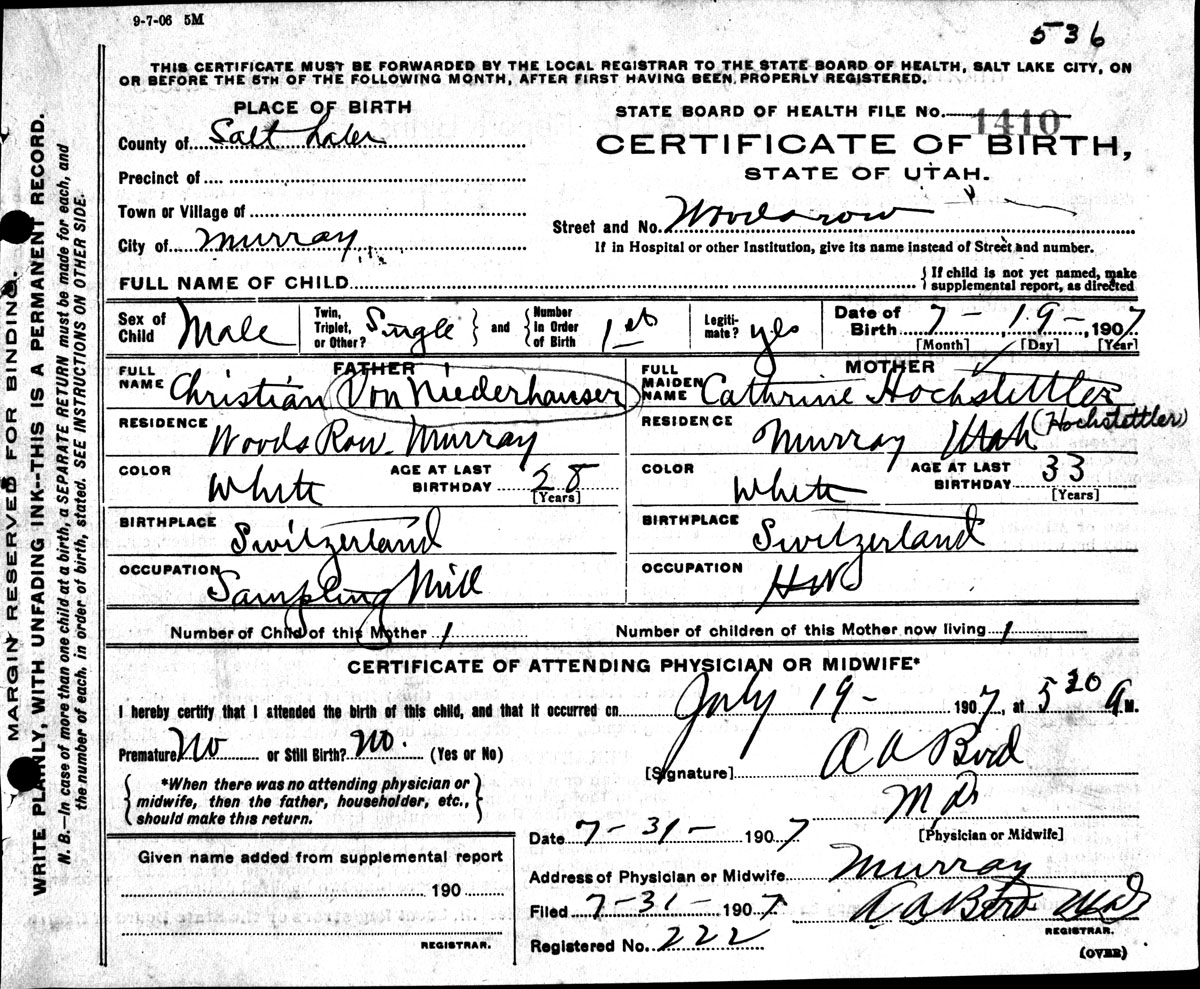 9-7-06 5M
536
THIS CERTIFICATE MUST BE FORWARDED BY THE LOCAL REGISTRAR TO THE STATE BOARD OF HEALTH, SALT LAKE CITY, ON
OR BEFORE THE 5TH OF THE FOLLOWING MONTH, AFTER FIRST HAVING BEEN PROPERLY REGISTERED.
PLACE OF BIRTH
County of Salt Lake
Precinct of
Town or Village of
City of Murray
STATE BOARD OF HEALTH FILE No. 1410
CERTIFICATE OF BIRTH,
STATE OF UTAH.
Street and No. Woodsrow
If in Hospital or other Institution, give its name instead of Street and number.
FULL NAME OF CHILD
{ If child is not yet named, make
supplemental report, as directed
Sex of Child Male
Twin, Triplet, or Other? Single } and { Number In Order of Birth 1st
Legiti- mate? yes
Date of Birth 7 - 19 - 1907
[Month] [Day] [Year]
FATHER
FULL NAME Christian Von Niederhauser
RESIDENCE Woods Row. Murray
COLOR White AGE AT LAST BIRTHDAY 28 [Years]
BIRTHPLACE Switzerland
OCCUPATION Sampling Mill
MOTHER
FULL MAIDEN NAME Cathrine Hochstettler
RESIDENCE Murray Utah (Hochstettler)
COLOR White AGE AT LAST BIRTHDAY 33 [Years]
BIRTHPLACE Switzerland
OCCUPATION HW
Number of Child of this Mother 1
Number of children of this Mother now living 1
CERTIFICATE OF ATTENDING PHYSICIAN OR MIDWIFE*
I hereby certify that I attended the birth of this child, and that it occurred on July 19 - 1907, at 5 20 A M.
Premature? No or Still Birth? No. (Yes or No)
{ *When there was no attending physician or
midwife, then the father, householder, etc.,
should make this return. }
[Signature] A A Bird
M D
[Physician or Midwife]
Date 7 - 31 - 1907
Address of Physician or Midwife Murray
Filed 7 - 31 - 1907 A A Bird MD
REGISTRAR.
Registered No. 222
(OVER)
Given name added from supplemental report
190
REGISTRAR.
MARGIN RESERVED FOR BINDING.
WRITE PLAINLY, WITH UNFADING INK--THIS IS A PERMANENT RECORD.
N. B.—In case of more than one child at a birth, a SEPARATE RETURN must be made for each, and
the number of each, in order of birth, stated. SEE INSTRUCTIONS ON OTHER SIDE.